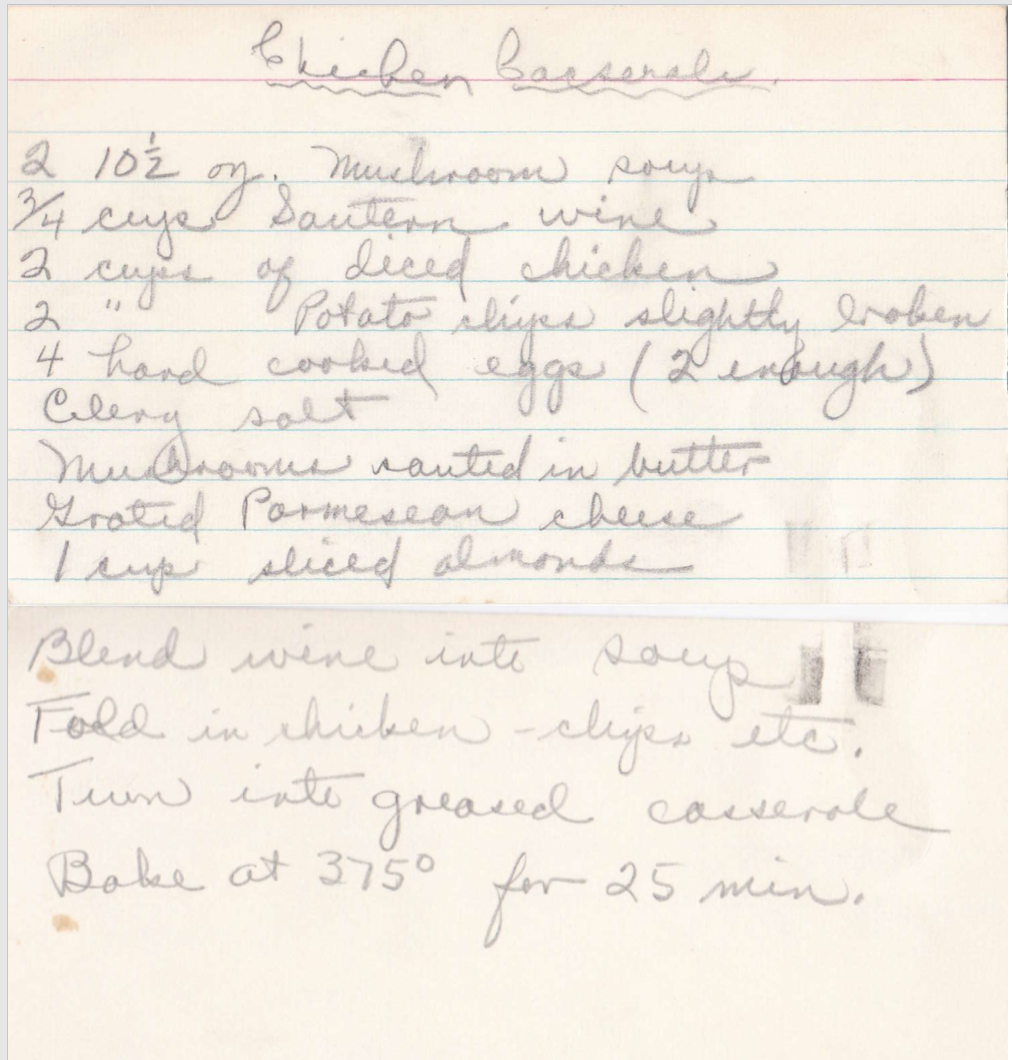 Chicken Casserole.
2 10½ oz. Mushroom soup
3/4 cups Sautern wine
2 cups of diced chicken
2 " Potato chips slightly broken
4 hard cooked eggs (2 enough)
Celery salt
Mushrooms sauted in butter
Grated Parmesean cheese
1 cup sliced almonds
Blend wine into soup
Fold in chicken - chips etc.
Turn into greased casserole
Bake at 375° for 25 min.